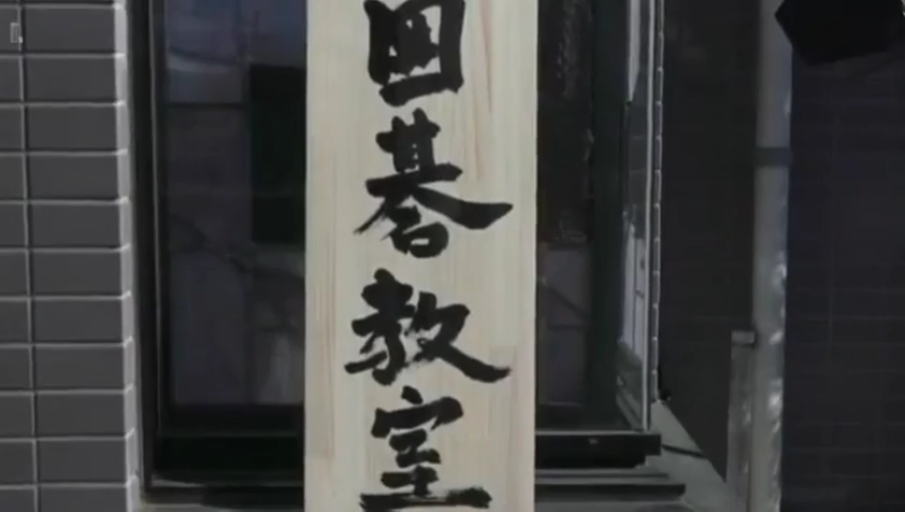 囲碁教室